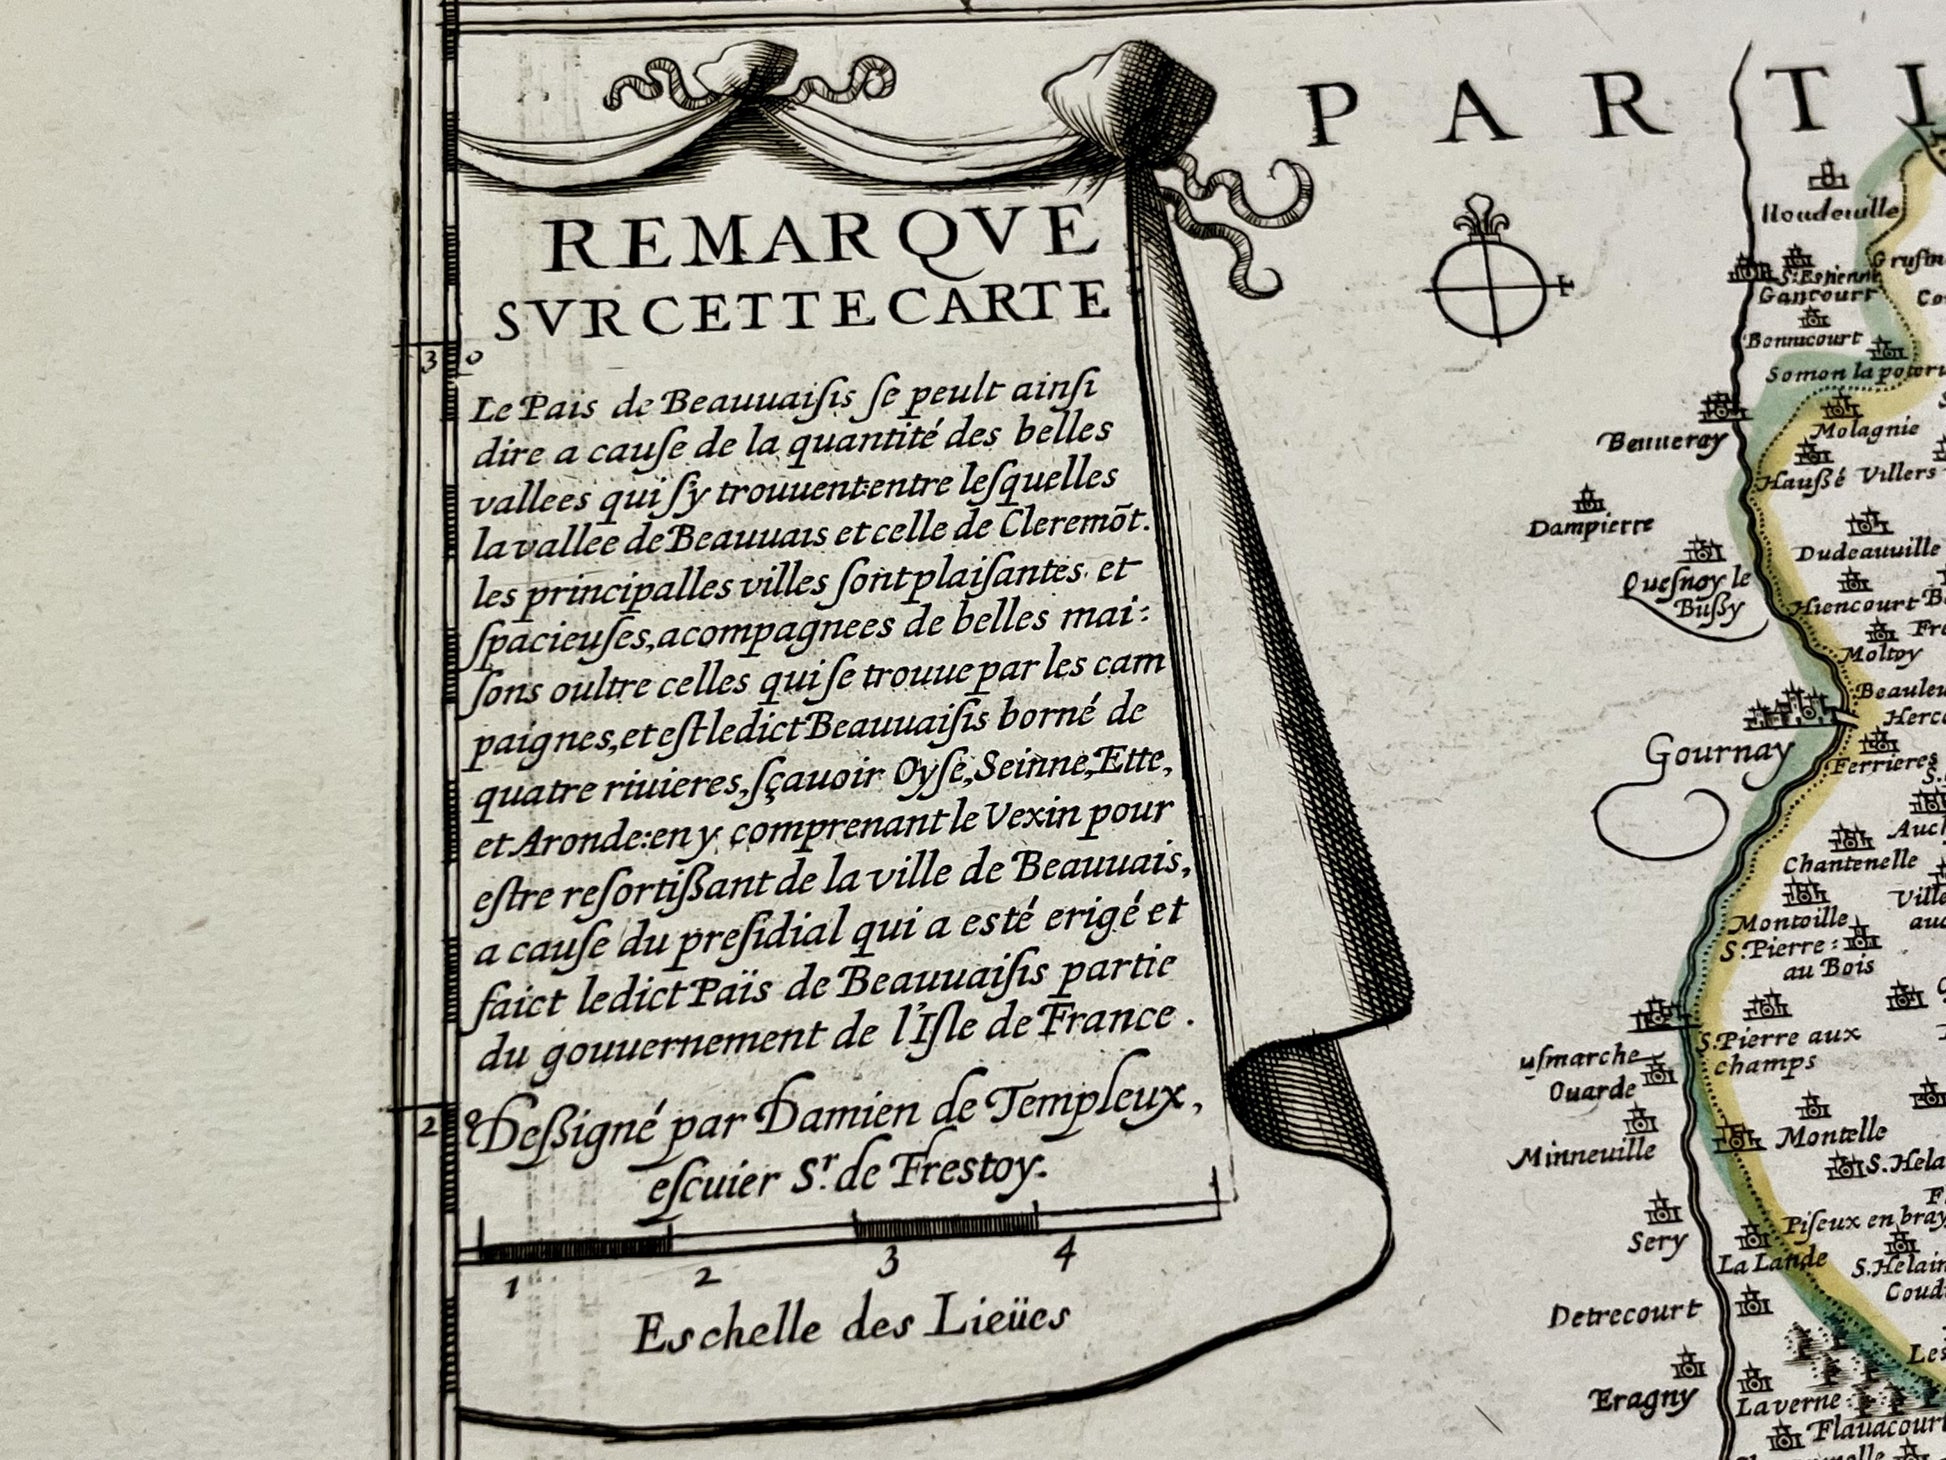 REMARQVE
SVR CETTE CARTE
Le Païs de Beauuaiſis ſe peult ainſi
dire a cauſe de la quantité des belles
vallees qui ſy trouuent entre leſquelles
la vallee de Beauuais et celle de Cleremõt.
les principalles villes ſont plaiſantes et
ſpacieuſes, acompagnees de belles mai:
ſons oultre celles qui ſe trouue par les cam
paignes, et eſt ledict Beauuaiſis borné de
quatre riuieres, ſçauoir Oyſe, Seinne, Ette,
et Aronde: en y comprenant le Vexin pour
eſtre reſortißant de la ville de Beauuais,
a cauſe du preſidial qui a esté erigé et
faict ledict Païs de Beauuaiſis partie
du gouuernement de l'Iſle de France.
Deßigné par Damien de Templeux,
eſcuier Sr. de Frestoy.
1 2 3 4
Eschelle des Lieües
30
20
PARTI
Houdeuille
S. Estienne
Gancourt
Bonnicourt
Beuueray
Molagnie
Haußé
Villers
Dampierre
Dudeauuille
Queſnoy le
Bußy
Hiencourt
Moltoy
Gournay
Ferrieres
Chantenelle
Montoille
S. Pierre:
au Bois
S. Pierre aux
champs
Ouarde
Montelle
Minneuille
Piſeux en bray
Sery
La Lande
Detrecourt
Eragny
Lauerne